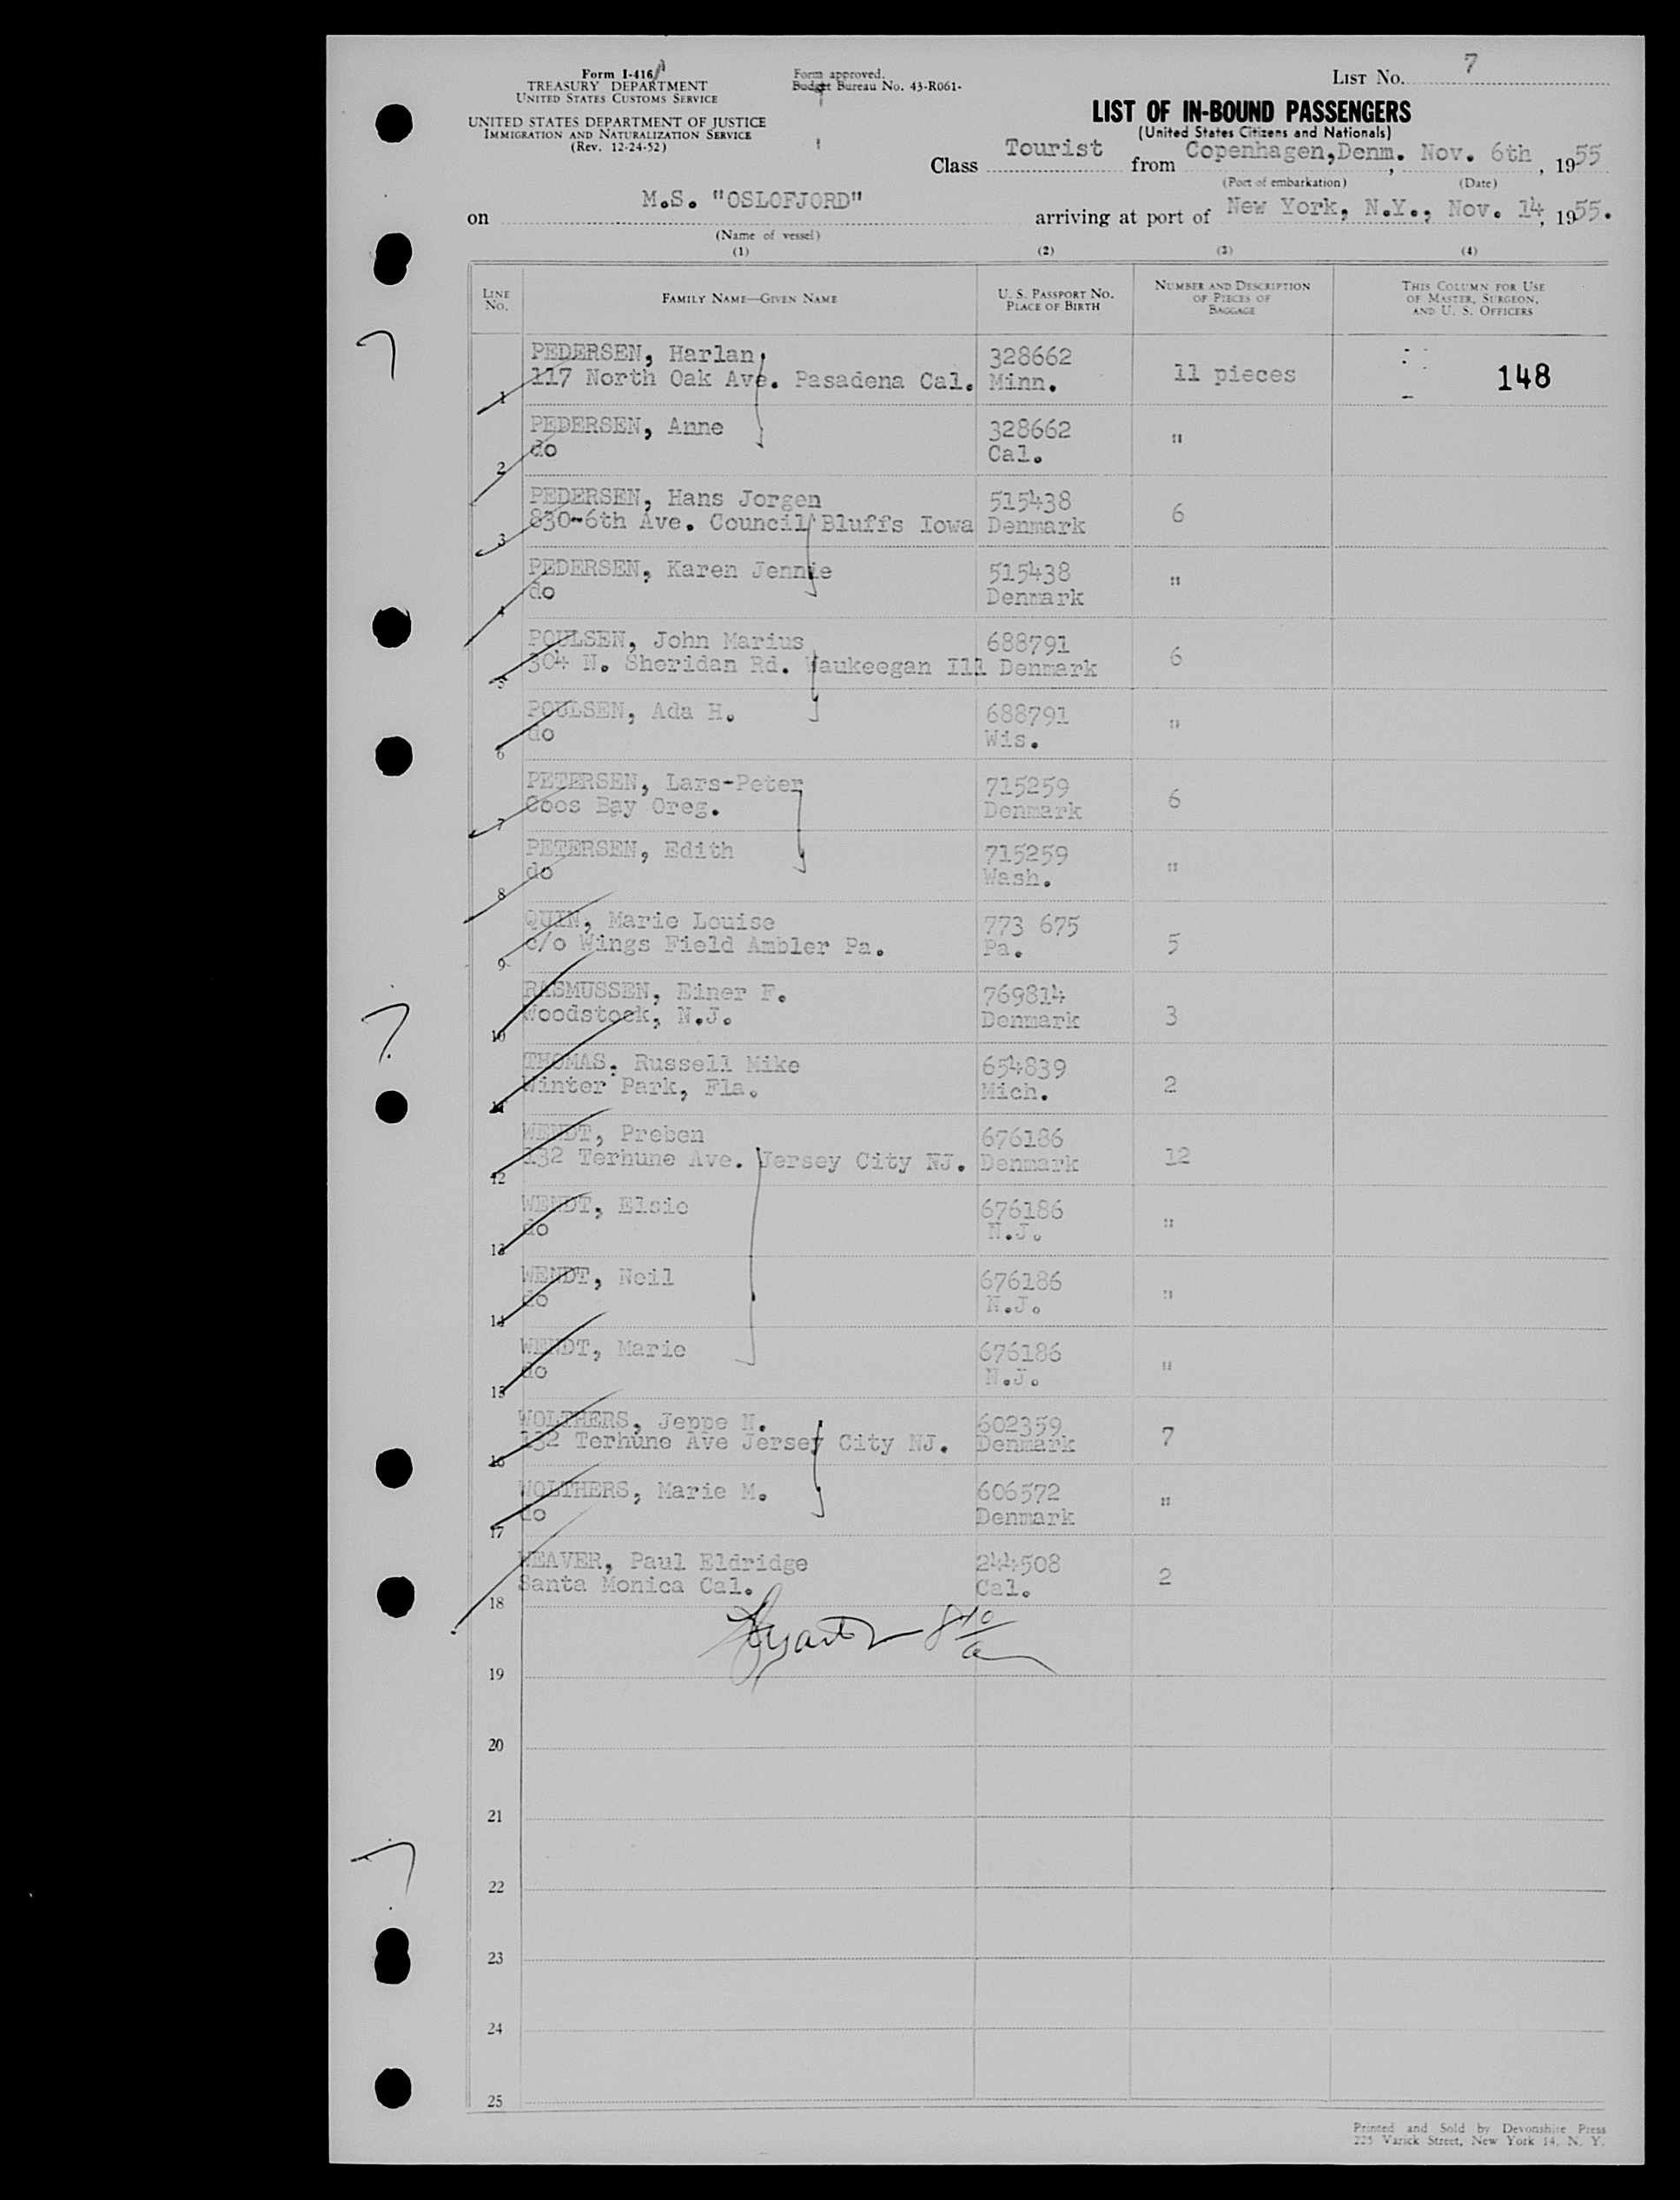 Form I-416
TREASURY DEPARTMENT
UNITED STATES CUSTOMS SERVICE
UNITED STATES DEPARTMENT OF JUSTICE
IMMIGRATION AND NATURALIZATION SERVICE
(Rev. 12-24-52)
Form approved.
Budget Bureau No. 43-R061-
LIST No. 7
LIST OF IN-BOUND PASSENGERS
(United States Citizens and Nationals)
Class Tourist from Copenhagen, Denm. , Nov. 6th , 1955
(Port of embarkation) (Date)
on M.S. "OSLOFJORD" arriving at port of New York, N.Y., Nov. 14, 1955.
(Name of vessel)
(1) (2) (3) (4)
LINE NO. FAMILY NAME—GIVEN NAME U. S. PASSPORT NO. PLACE OF BIRTH NUMBER AND DESCRIPTION OF PIECES OF BAGGAGE THIS COLUMN FOR USE OF MASTER, SURGEON, AND U. S. OFFICERS
PEDERSEN, Harlan 328662
1 117 North Oak Ave. Pasadena Cal. Minn. 11 pieces 148
PEDERSEN, Anne 328662
2 do Cal. "
PEDERSEN, Hans Jorgen 515438
3 830-6th Ave. Council Bluffs Iowa Denmark 6
PEDERSEN, Karen Jennie 515438
4 do Denmark "
POULSEN, John Marius 688791
5 304 N. Sheridan Rd. Waukeegan Ill Denmark 6
POULSEN, Ada H. 688791
6 do Wis. "
PETERSEN, Lars-Peter 715259
7 Coos Bay Oreg. Denmark 6
PETERSEN, Edith 715259
8 do Wash. "
QUIN, Marie Louise 773 675
9 c/o Wings Field Ambler Pa. Pa. 5
RASMUSSEN, Einer F. 769814
10 Woodstock, N.J. Denmark 3
THOMAS. Russell Mike 654839
11 Winter Park, Fla. Mich. 2
WENDT, Preben 676186
12 132 Terhune Ave. Jersey City NJ. Denmark 12
WENDT, Elsie 676186
13 do N.J. "
WENDT, Neil 676186
14 do N.J. "
WENDT, Marie 676186
15 do N.J. "
WOLTHERS, Jeppe N. 602359
16 132 Terhune Ave Jersey City NJ. Denmark 7
WOLTHERS, Marie M. 606572
17 do Denmark "
WEAVER, Paul Eldridge 244508
18 Santa Monica Cal. Cal. 2
19
20
21
22
23
24
25
Printed and Sold by Devonshire Press
225 Varick Street, New York 14, N. Y.